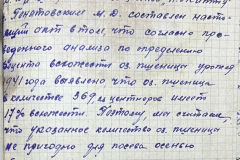 М. Д. составлен насто-
ящий акт в том, что согласно про-
веденного анализа по определению
всхожести оз. пшеницы урожая
1941 года выявлено что оз. пшеница
в количестве 369 центнеров имеет
17% всхожести. Поэтому мы считаем,
что указанное количество оз. пшеницы
не пригодно для посева осенью